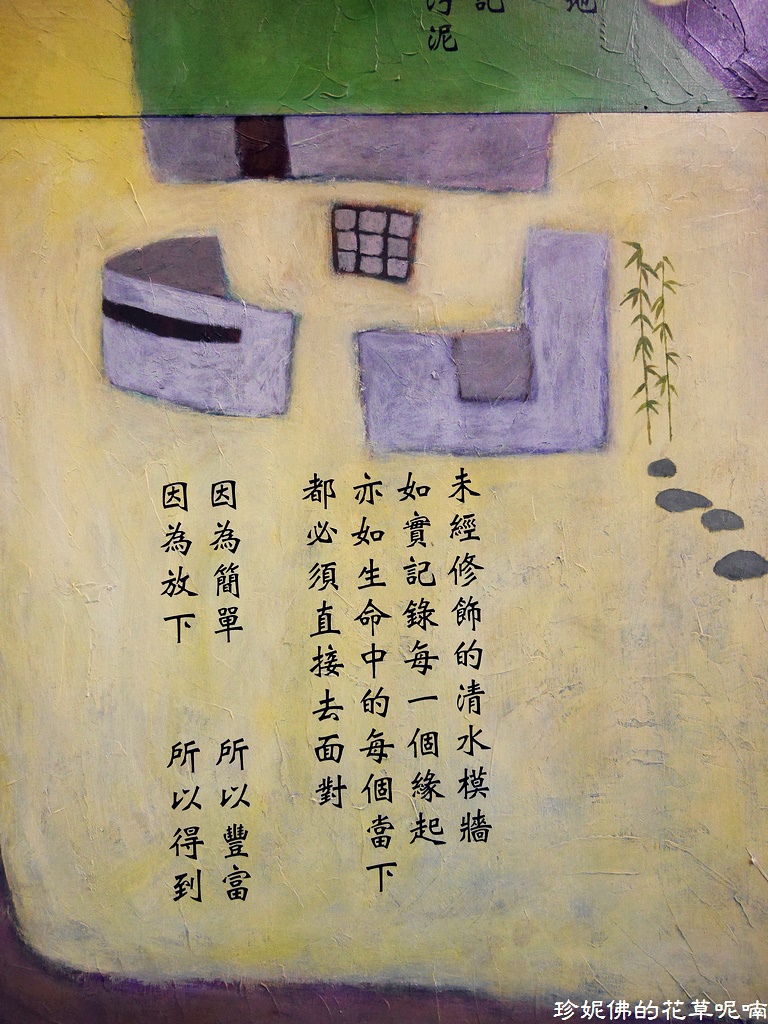 地
記
污泥
未經修飾的清水模牆
如實記錄每一個緣起
亦如生命中的每個當下
都必須直接去面對
因為簡單 所以豐富
因為放下 所以得到
珍妮佛的花草呢喃